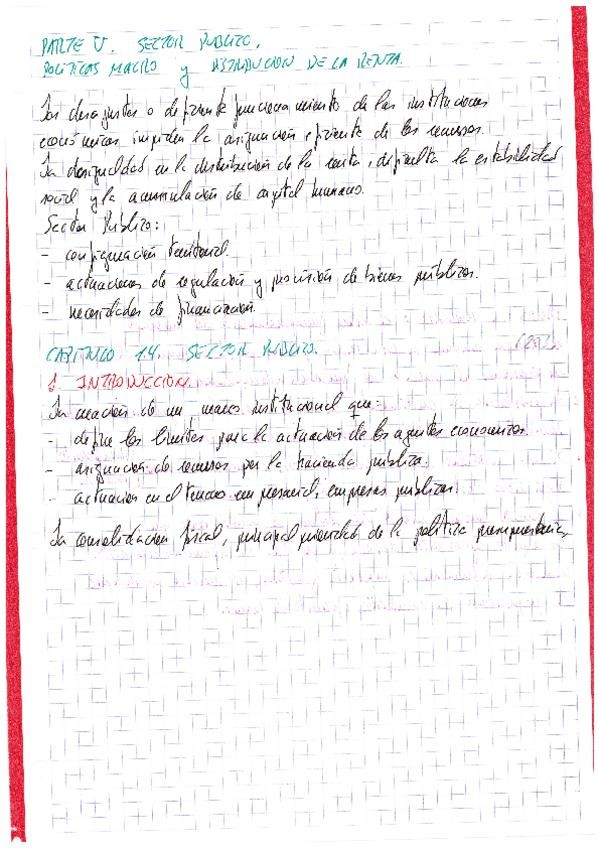 PARTE V. SECTOR PUBLICO.
POLÍTICAS MACRO y DISTRIBUCION DE LA RENTA.
Los desajustes o deficiente funcionamiento de las instituciones
económicas impiden la asignación eficiente de los recursos.
La desigualdad en la distribución de la renta, dificulta la estabilidad
social y la acumulación de capital humano.
Sector Público:
- configuración territorial.
- actuaciones de regulación y provisión de bienes públicos.
- necesidades de financiación.
CAPITULO 14. SECTOR PUBLICO.
1. INTRODUCCION
La creación de un marco institucional que:
- define los límites para la actuación de los agentes económicos.
- asignación de recursos por la hacienda pública.
- actuacion en el terreno empresarial, empresas públicas.
La consolidación fiscal, principal prioridad de la política presupuestaria,